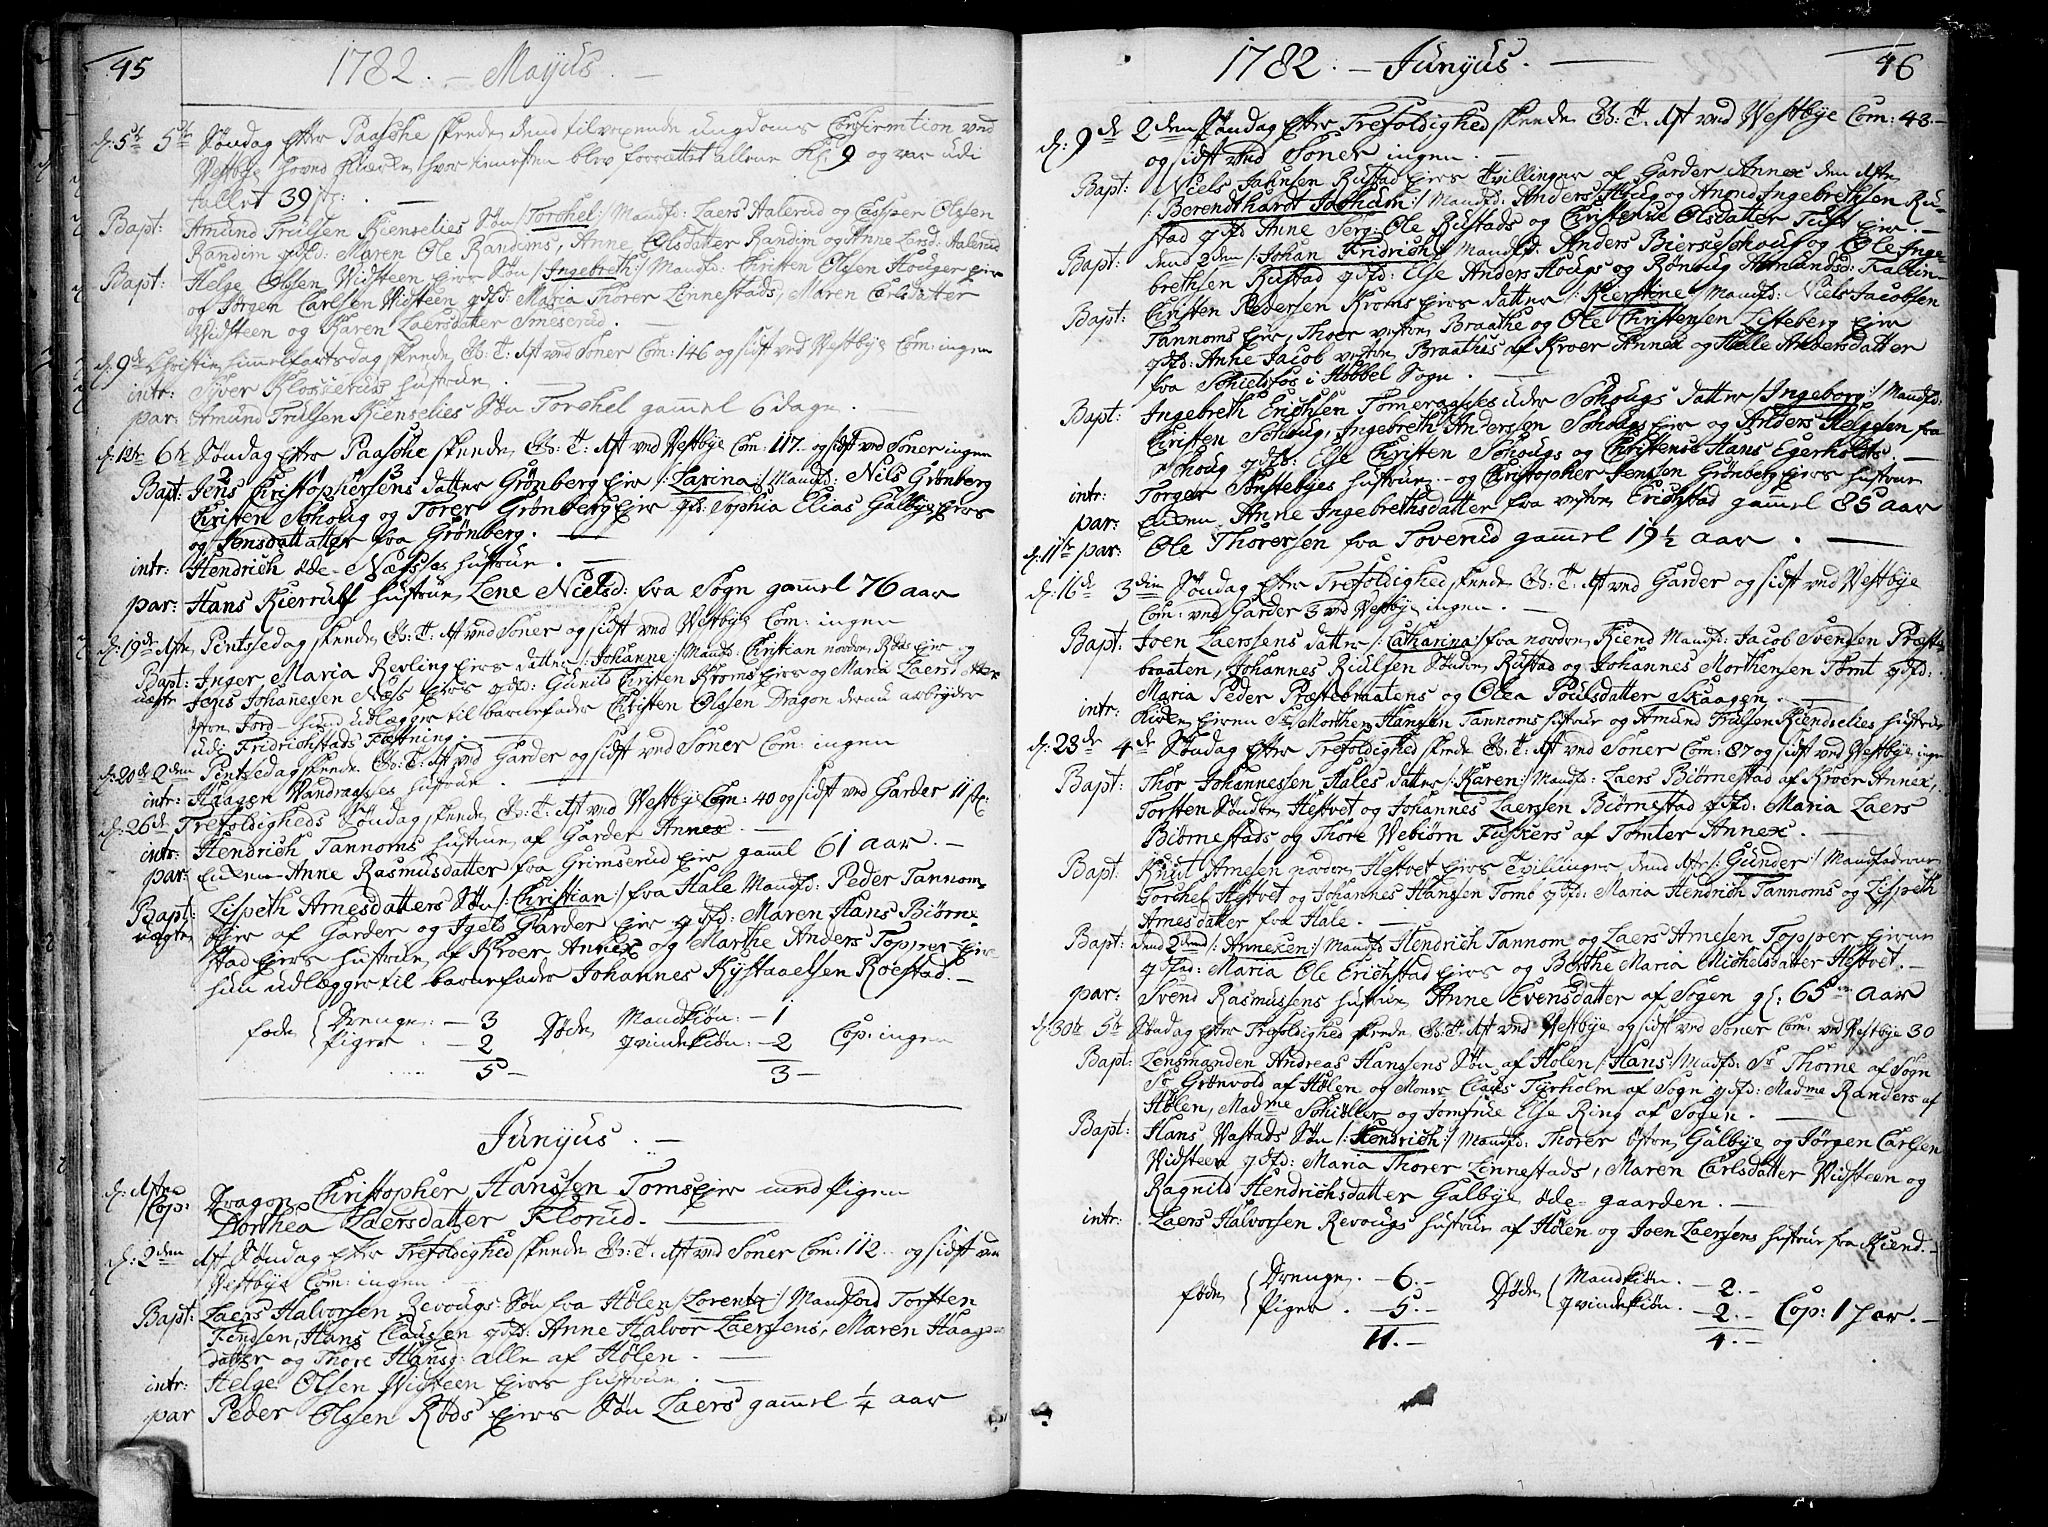 45
1782. — Mayus. —
d: 5te 5te Søndag efter Paasche skeede dend tilvoxende ungdoms Confirmtion ved
Westbye hoved Kircke, hvor tienesten blev forrettet allene Kl: 9 og var udi
tallet 39 st: —
Bapt: Amund Trulsen Kienselies Søn /:Torchel:/ Mandf: Laers Aalerud og Casper Olssen
Randim qdfd: Maren Ole Randims, Anne Olsdatter Randim og Anne Larsd: Aalerud
Bapt: Helge Olssen Vidsteen Eiers Søn /:Ingebreth:/ Mandf: Christen Olssen Houger eier
og Jørgen Carlsen Vidsteen qdfd: Maria Thorer Linnestads, Maren Carlsdatter
Vidsteen og Karen Laersdatter Smeserud. —
d: 9de Christi himmelfartsdag skeede G: T: Aft ved Soner Com: 146 og sidst ved Vestbye Com: ingen
intr: Syver Kloseruds hustrue. —
par: Amund Trulsen Kienselies Søn Torchel gammel 6 dage. —
d: 12te 6te Søndag efter Paasche skeede G: T: Aft ved Vestbye Com: 117. og sidst ved Soner ingen
Bapt: Jens Christophersens datter Grønberg Eier /:Larina:/ Mandf: Nils Grønberg
Christen Schoug og Torer Grønberg Eier qdf: Sophia Elias Galbye Eiers
og Jensdattatter fra Grønberg. —
intr: Hendrich øde Næsses hustrue. —
par: Hans Kierrulf hustrue, Lene Nielsd: fra Sogn gammel 76 aar
d: 19de Aften Pentsedag skeede G: T: Aft ved Soner og sidst ved Vestbye Com: ingen
Bapt: Inger Maria Revling Eiers datter /:Johanne:/ Mandf: Christian nordre Røds Eier og
uægte Jens Johanesen Næss Eiers qdfd: Gunild Christen Kroms Eiers og Maria Laers
østen Jord hund udlægger til barnefader Christen Olssen Dragon derud arbeyder
udi Fridrichstads Fæstning. —
d: 20de 2den Pentsedag skeede G: T: Aft ved Garder og sidst ved Soner Com: ingen
intr: Haagen Vandragsses hustrue —
d: 26de Trefoldigheds Søndag skeede G: T: Aft ved Vestbye Com: 40 og sidst ved Garder 11 st:
intr: Hendrich Tannoms hustrue af Garder Annex. —
par: Enken Anne Rasmusdatter fra Grimserud Eier gaml 61 aar. —
Bapt: Lispeth Arnesdatters Søn /:Christian:/ fra Hale Mandfd: Peder Tannom-
uægte Eier af Garder og Igeld Garder Eier qdfd: Maren Hans Biørne-
stad Eiers hustrue af Kroer Annex og Marthe Anders Topper Eier
hun udlægger til barnefader Johannes Kystaaelsen Roestad.—
føde { Drenge: — 3 Døde Mandkiøn: — 1 Cop: ingen
Piger . — 2 qvindekiøn: — 2
5 — 3 —
Junyus. —
d: Aften
Cop: Dragon Christopher Hanssen Toms Eier med Pigen
Dorthea Laersdatter Florud. —
d: 2den Aft Søndag efter Trefoldighed skeede G: T: Aft ved Soner Com: 112. og sidst ved
Vestbye Com: ingen —
Bapt: Laers Halvorsen Revougs Søn fra Hølen /:Lorentz:/ Mandford Torsten
Findsen, Hans Claussen qdfd: Anne Halvor Laerssens, Maren Haagens
datter og Thore Hansd: alle af Hølen. —
intr: Helge Olsen Vidsteen Eiers hustrue. —
par Peder Olssen Røds Eiers Søn Laers gammel 1/4 aar
46
1782. — Junyus. —
d: 9de 2den Søndag efter Trefoldighed skeede G: T: Aft ved Vestbye Com: 48.—
og sidst ved Soner ingen. —
Bapt: Niels Jahnsen Rustad Eiers Tvillinger af Garder Annex den Aften
/:Berendthardt Jochum:/ Mandfd: Anders Houg og Amond Ingebrethsen Ru-
stad qdfd Anne Serg: Ole Rustads og Christense Olsdatter Tust Eier.—
Bapt: dend 2den /:Johan Fridrich:/ Mandfd: Anders Bierseschoug og Ole Inge-
brethsen Rustad qdfd: Else Anders Hougs og Rønoug Amundsd: Kallin
Bapt: Christen Pedersen Kroms Eiers datter /:Kierstine:/ Mandfd: Niels Jacobsen
Tannoms Eier, Thoer vestre Braathe og Ole Christensen Listeberg Eier
qdfd: Anne Jacob vestre Braathes af Kroer Annex og Hale Andersdatter
fra Schielsfos i Hobbel Sogn. —
Bapt: Ingebreth Erichsen Tomeragsses under Schougs datter /:Ingeborg:/ Mandfd:
Christen Schoug, Ingebreth Anderssen Schougs Eier og Anders Helgesen fra
Schoug qdfd: Else Christen Schougs og Christense Hans Egerholts. —
intr: Torger Sonstebyes hustrue — og Christopher Jenssen Grønberg Eiers hustrue
par: Enken Anne Ingebrethsdatter fra vestre Erichstad gammel 85 aar
d: 11te par: Ole Thorersen fra Toverud gammel 19 1/2 aar. —
d: 16de 3die Søndag efter Trefoldighed skeede G: T: Aft ved Garder og sidst ved Vestbye
Com: ved Garder 3 ved Vestbye ingen. —
Bapt: Joen Laerssens datter /:Catharina:/ fra nordre Kiend Mandfd: Jacob Svendsen Præste-
braaten, Johannes Riulsen Søndre Rustad og Johannes Morthensen Tomt qdfd:
Maria Peder Præstebraatens og Olea Poulsdatter Skaagen. —
intr: Kirke eieren Sr Morthen Hansen Tannoms hustrue og Amund Trulsen Kiendselies hustrue
d: 23de 4de Søndag efter Trefoldighed skeede G: T: Aft ved Soner Com: 87 og sidst ved Vestbye ingen
Bapt: Thor Johannessen Hales datter /:Karen:/ Mandfd: Laers Biørnestad af Kroer Annex,
Torsten Søndre Hestvet og Johannes Laerssen Biørnestad qdfd: Maria Laers
Biørnestads og Thore Vebiørn Fuskers af Tomter Annex. —
Bapt: Knud Arnesen nordre Hestvet Eiers Tvillinger dend Afte /:Gunder:/ Mandfadere
Torchel Hestvet og Johannes Hansen Tomb qdfd: Maria Hendrich Tannoms og Lispeth
Arnesdatter fra Hale. —
Bapt: dend 2den /:Anneken:/ Mandfd Hendrich Tannom og Laers Arnesen Topper Eierne
qdfd: Maria Ole Erichstad Eiers og Berthe Maria Michelsdatter Hestvet. —
par: Svend Rasmussens hustrue, Anne Evensdatter af Sogen gl: 65 aar
d: 30te 5te Søndag efter Trefoldighed skeede G: T: Aft ved Vestbye og sidst ved Soner Com: ved Vestbye 30
Bapt: Lensmanden Andreas Hanssens Søn af Hølen /:Hans:/ Mandfd: Sr Thorne af Sogn
Sr Grønvold af Hølen og Monsr Claus Tyrholm af Sogn qdfd: Madme Randers af
Hølen, Madme Schiøller og Jomfrue Else Ring af Sogen. —
Bapt: Hans Vastads Søn /:Hendrich:/ Mandfd: Thorer østre Galbye og Jørgen Carlsen
Vidsteen qdfd: Maria Thorer Linnestads, Maren Carlsdatter Vidsteen og
Ragnild Hendrichsdatter Galbye øde-gaarden. —
intr: Laers Halvorsen Revougs hustrue af Hølen og Joen Laerssens hustrue fra Kiend.—
føde { Drenge. — 6.— Døde { Mandkiøn. — 2.—
Piger . — 5.— qvindekiøn. — 2.— Cop: 1 par.—
11.— 4.—